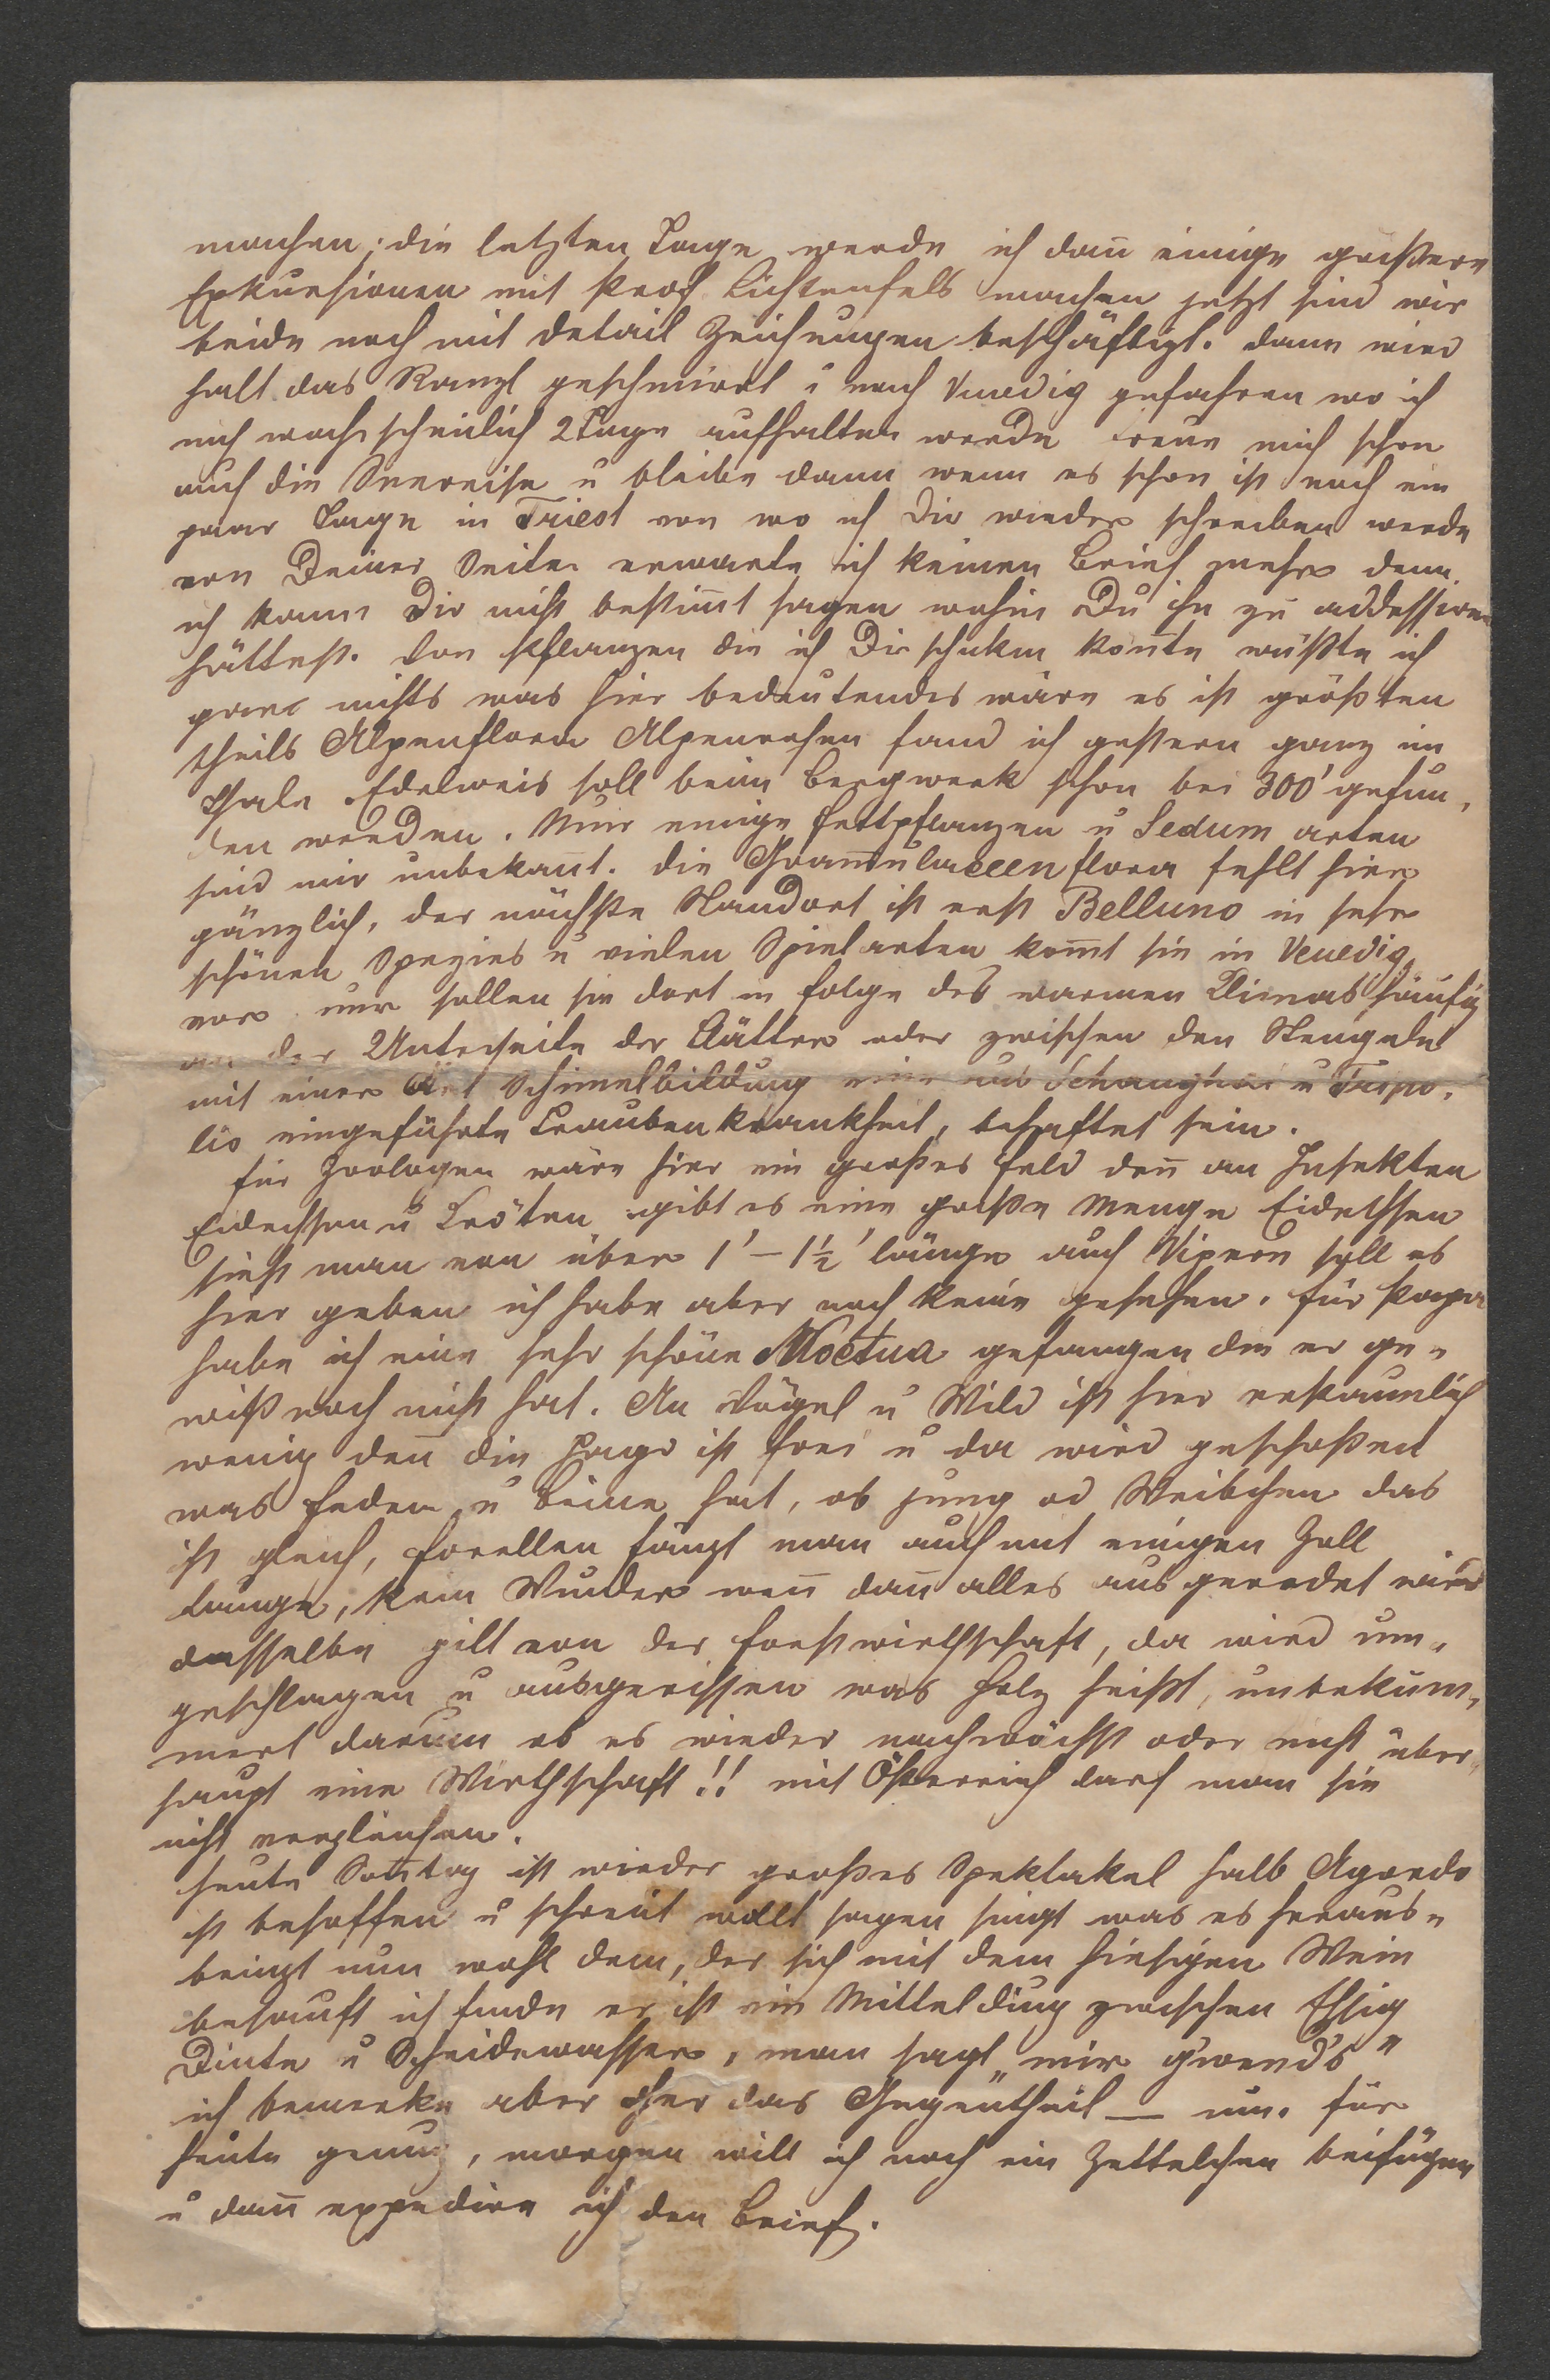 machen; die letzten Tage werde ich dan̄ einige größere
Exkursionen mit Prof. Lichtenfels machen jetzt sind wir
beide noch mit Detail Zeichnungen beschäftigt. Dann wird
halt das Ranzl geschnürrt u nach Venedig gefahren wo ich
mich wahrscheinlich 2 Tage aufhalten werde freue mich schon
auf die Seereise u bleibe dann wenn es schön ist noch ein
paar Tage in Triest von wo ich Dir wieder schreiben werde
von Deiner Seite erwarte ich keinen Brief mehr denn
ich kann Dir nicht bestim̄t sagen wohin Du ihn zu addessiren
hättest. Von Pflanzen die ich Dir schicken kon̄te wüßte ich
ganz nichts was hier bedeutendes wäre es ist größten
theils Alpenflora Alpenrosen fand ich gestern ganz im
Thale. Edelweis soll beim Bergwerk schon bei 300' gefun-
den werden. Nur einige Fettpflanzen u Sedum arten
sind mir unbekan̄t. Die flora fehlt hier
gänzlich, der nächste Standort ist erst Belluno in sehr
schönen Spezies u vielen Spielarten kom̄t sie in Venedig
vor nur sollen sie dort in folge des warmen Climas häufig
an der Unterseite der Blätter oder zwischen den Stengeln
mit einer Art Schimelbildung eine aus Schanghai u
eingeführte Traubenkrankheit, behaftet sein.
Für Zoologen wäre hier ein großes Feld den̄ an Insekten
Eidechsen u Kröten gibt es eine große Menge Eidechsen
sieht man von über 1' – 1½' länge auch Vipern soll es
hier geben ich habe aber noch keine gesehen. Für Papa
habe ich eine sehr schöne Noctua gefangen die er ge-
wiß noch nicht hat. An Vögel u Wild ist hier erstaunlich
wenig den̄ die Jagd ist frei u da wird geschoßen
was Federn u Beine hat, ob jung od Weibchen das
ist gleich, Forellen fängt man auch mit einigen Zoll
Länge, kein Wunder wen̄ dan̄ alles ausgerodet wird
dasselbe gilt von der Forstwirthschaft, da wird um-
geschlagen u ausgerissen was Holz heißt, unbeküm-
mert darum ob es wieder nachwächst oder nicht über-
haupt eine Wirthschaft!! mit Österreich darf man sie
nicht vergleichen.
Heute Son̄tag ist wieder großes Spektakel halb Agordo
ist besoffen u schreit wollt sagen singt was es heraus-
bringt nun wohl dem, der sich mit dem hiesigen Wein
besauft ich finde er ist ein Mittelding zwischen Essig
Dinte u Scheidewasser, man sagt „mir g'wend's"
ich bemerke aber eher das Gegentheil — nun für
heute genug, morgen will ich noch ein Zettelchen beifügen
u dan̄ expedire ich den Brief.